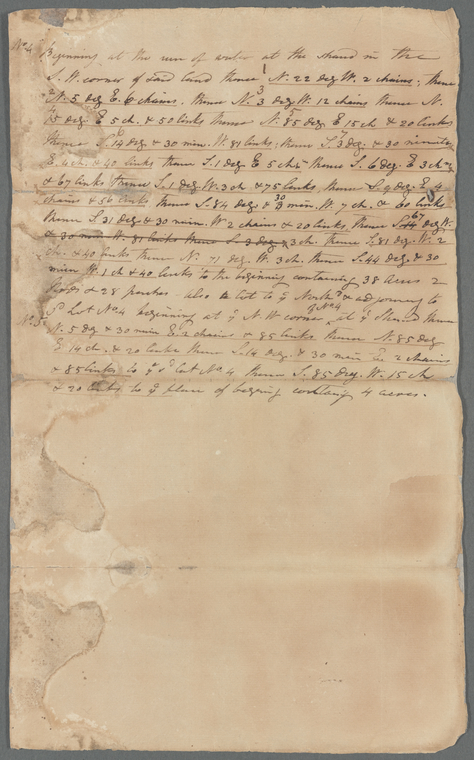 No. 4 Beginning at the run of water at the strand in the
S. W. corner of said land thence N. 22 deg W. 2 chains; thence
N. 5 deg E. 6 chains. thence N. 3 deg W. 12 chains thence N.
15 deg. E 5 ch. & 50 links thence S. 85 deg E 15 ch & 20 links
thence S. 14 deg & 30 min. W. 81 links; thence S. 3 deg. & 30 minutes
E. 4 ch. & 40 links thence S. 1 deg E 5 chs thence S. 6 deg. E 3 ch
& 67 links thence S. 1 deg. W. 3 ch & 75 links, thence S. 9 deg. E 4
chains & 56 links thence S. 84 deg & 30 min. W. 7 ch. & 60 links
thence S. 31 deg & 30 min. W 2 chains & 20 links. thence S. 67 deg W.
& 30 min W. 81 links thence S. 3 deg & 3 ch. thence S. 81 deg. W. 2
ch. & 40 links thence N. 71 deg W. 3 ch. thence S. 44 deg. & 30
min W. 1 ch & 40 links to the beginning containing 38 acres 2
roods & 28 perches also a lot to ye North & adjoining to
No. 5 sd Lot No. 4 beginning at ye N W corner of No. 4 at ye Strand thence
N. 5 deg & 30 min E 2 chains & 85 links thence N. 85 deg
E. 14 ch. & 20 links thence S. 14 deg. & 30 min 2 chains
& 85 links to ye sd Lot No. 4 thence S. 85 deg. W. 15 ch
& 20 links to ye place of beging containg 4 acres.